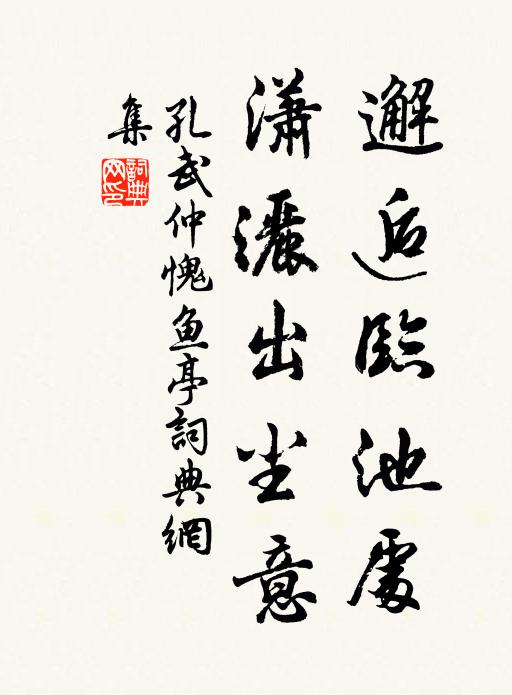 邂逅臨池處
瀟灑出尘意
孔武仲愧魚亭詞典網
集
詞典網印